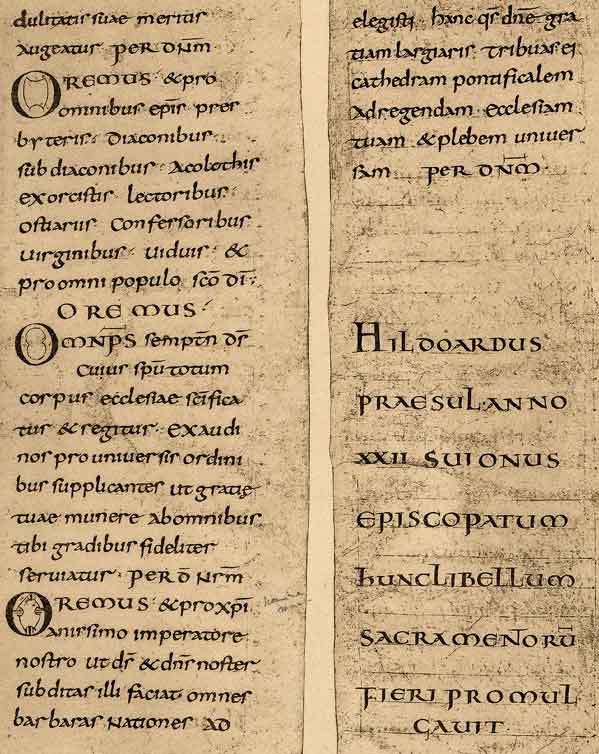 dulitatis suae meritis
augeatus per dnm
Oremus · & pro
omnibus epis pres
byteris · diaconibus ·
subdiaconibus · acolothis
exorcistis · lectoribus ·
ostiariis confessoribus
virginibus · viduis · &
pro omni populo sco di ·
OREMUS ·
Omnps sempitn ds
cuius spu totum
corpus ecclesiae scifica
tus & regitus · exaudi
nos pro universis ordini
bus supplicantes ut gratię
tuae munere ab omnibus
tibi gradibus fideliter
serviatus · per d nrm
Oremus · & pro xpi
anissimo imperatore
nostro ut ds & dns noster
subditas illi faciat omnes
barbaras nationes ad
elegisti · hanc qs dne gra
tiam largiaris · tribuas ei
cathedram pontificalem
ad regendam ecclesiam
tuam & plebem univer
sam per dnm ·
HILDOARDUS
PRAESUL ANNO
XXII SUI ONUS
EPISCOPATUM
HUNC LIBELLUM
SACRAMENORŪ
FIERI PROMUL
GAVIT ·